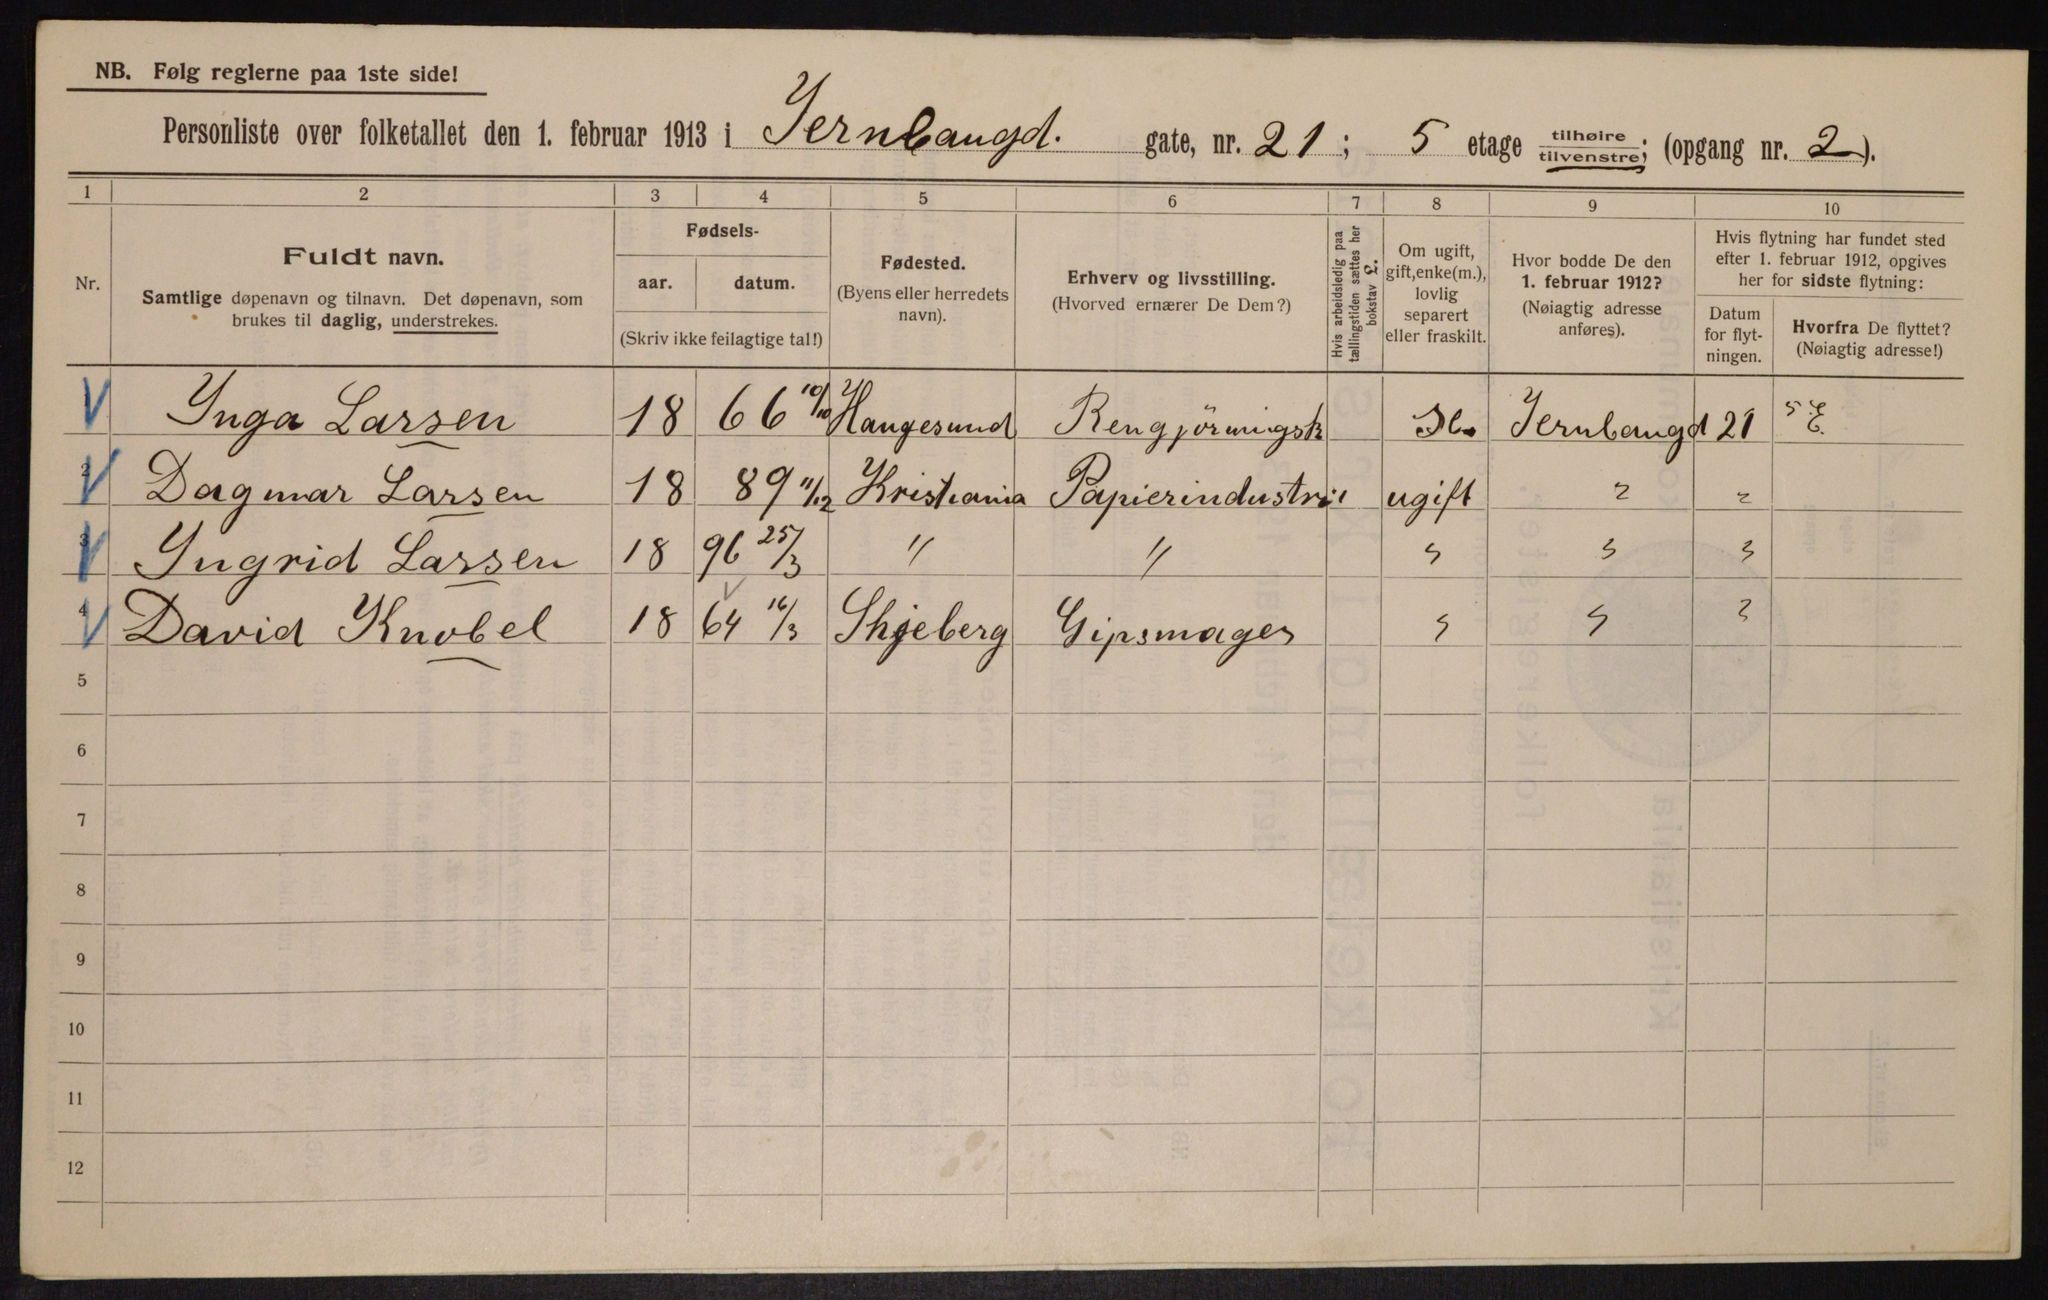 NB. Følg reglerne paa 1ste side!
Personliste over folketallet den 1. februar 1913 i Jernbaugd. gate, nr. 21; 5 etage tilhøire / tilvenstre; (opgang nr. 2).
1 2 3 4 5 6 7 8 9 10
Nr.
Fuldt navn.
Samtlige døpenavn og tilnavn. Det døpenavn, som
brukes til daglig, understrekes.
Fødsels-
aar. datum.
(Skriv ikke feilagtige tal!)
Fødested.
(Byens eller herredets
navn).
Erhverv og livsstilling.
(Hvorved ernærer De Dem?)
Hvis arbeidsledig paa
tællingstiden sættes her
bokstav L.
Om ugift,
gift, enke(m.),
lovlig
separert
eller fraskilt.
Hvor bodde De den
1. februar 1912?
(Nøiagtig adresse
anføres).
Hvis flytning har fundet sted
efter 1. februar 1912, opgives
her for sidste flytning:
Datum
for flyt-
ningen.
Hvorfra De flyttet?
(Nøiagtig adresse!)
Ynga Larsen 18 66 10/10 Haugesund Rengjörningsk Jernbaugd 21 5 E.
2 Dagmar Larsen 18 89 11/12 Kristiania Papierindustri ugift " "
3 Yngrid Larsen 18 96 25/3 " " " " "
4 David Knobel 18 64 16/3 Skjeberg Gipsmager " " "
5
6
7
8
9
10
11
12